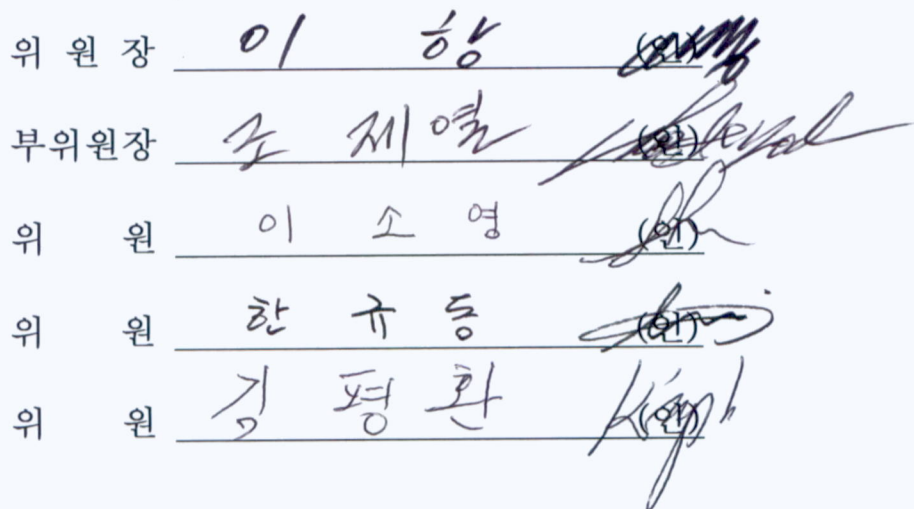 위 원 장 이 항 (인)
부위원장 조 제 열 (인)
위 원 이 소 영 (인)
위 원 한 규 동 (인)
위 원 김 평 환 (인)